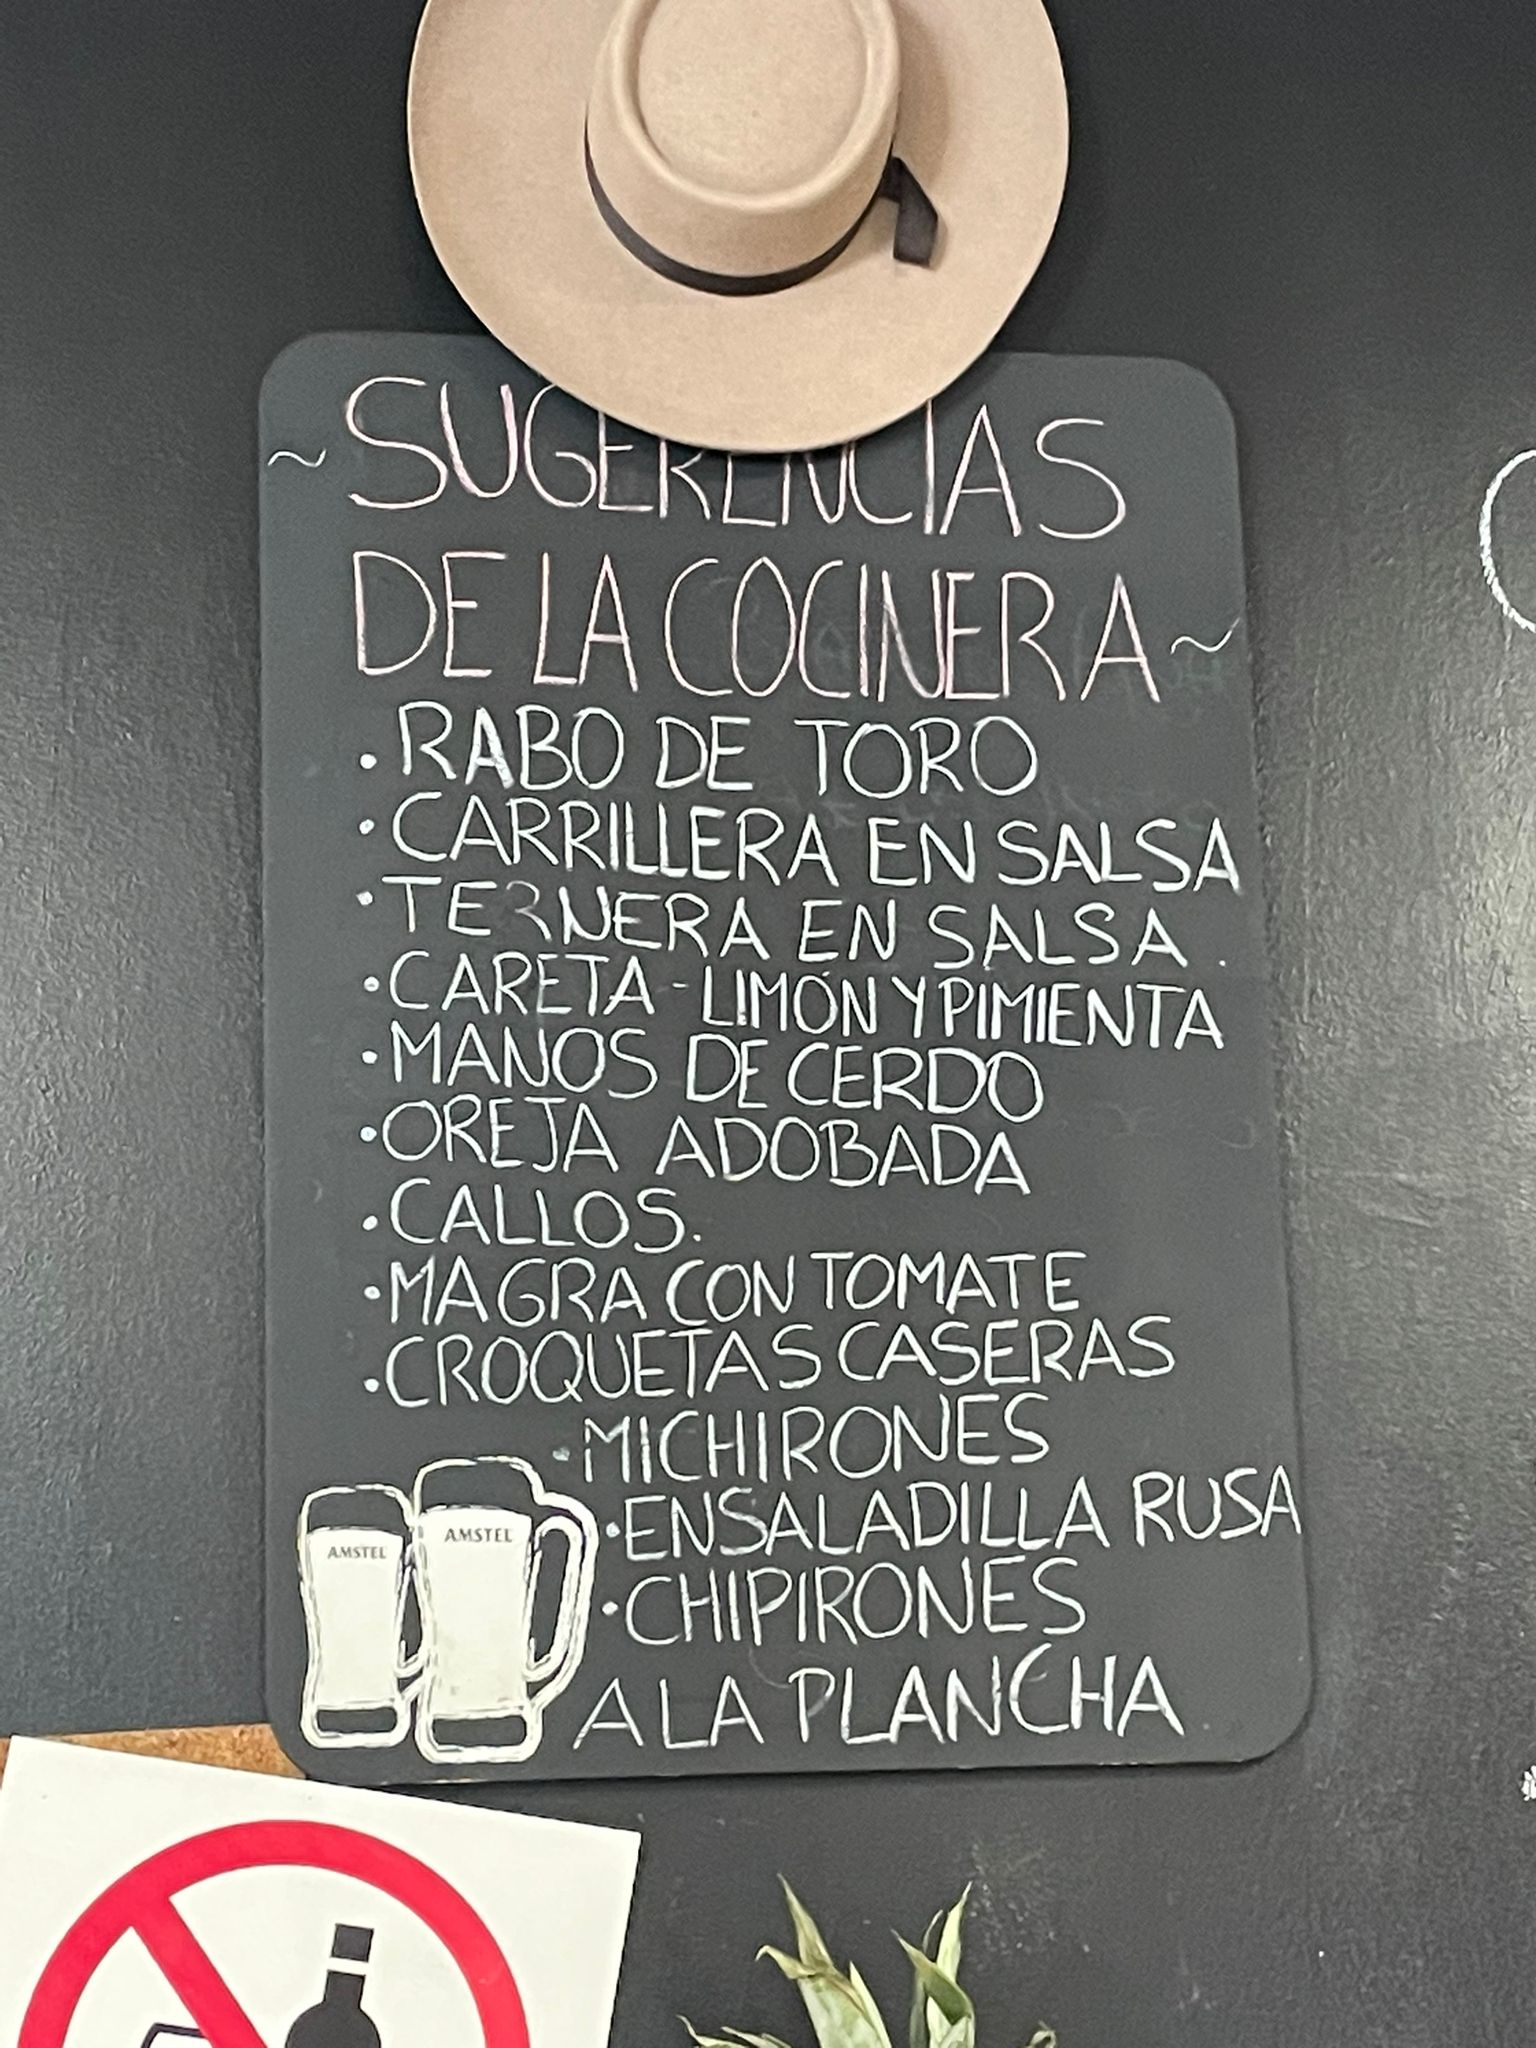 ~SUGERENCIAS
DE LA COCINERA~
• RABO DE TORO
• CARRILLERA EN SALSA
• TERNERA EN SALSA.
• CARETA - LIMÓN Y PIMIENTA
• MANOS DE CERDO
• OREJA ADOBADA
• CALLOS.
• MAGRA CON TOMATE
• CROQUETAS CASERAS
• MICHIRONES
• ENSALADILLA RUSA
• CHIPIRONES
A LA PLANCHA
AMSTEL
AMSTEL